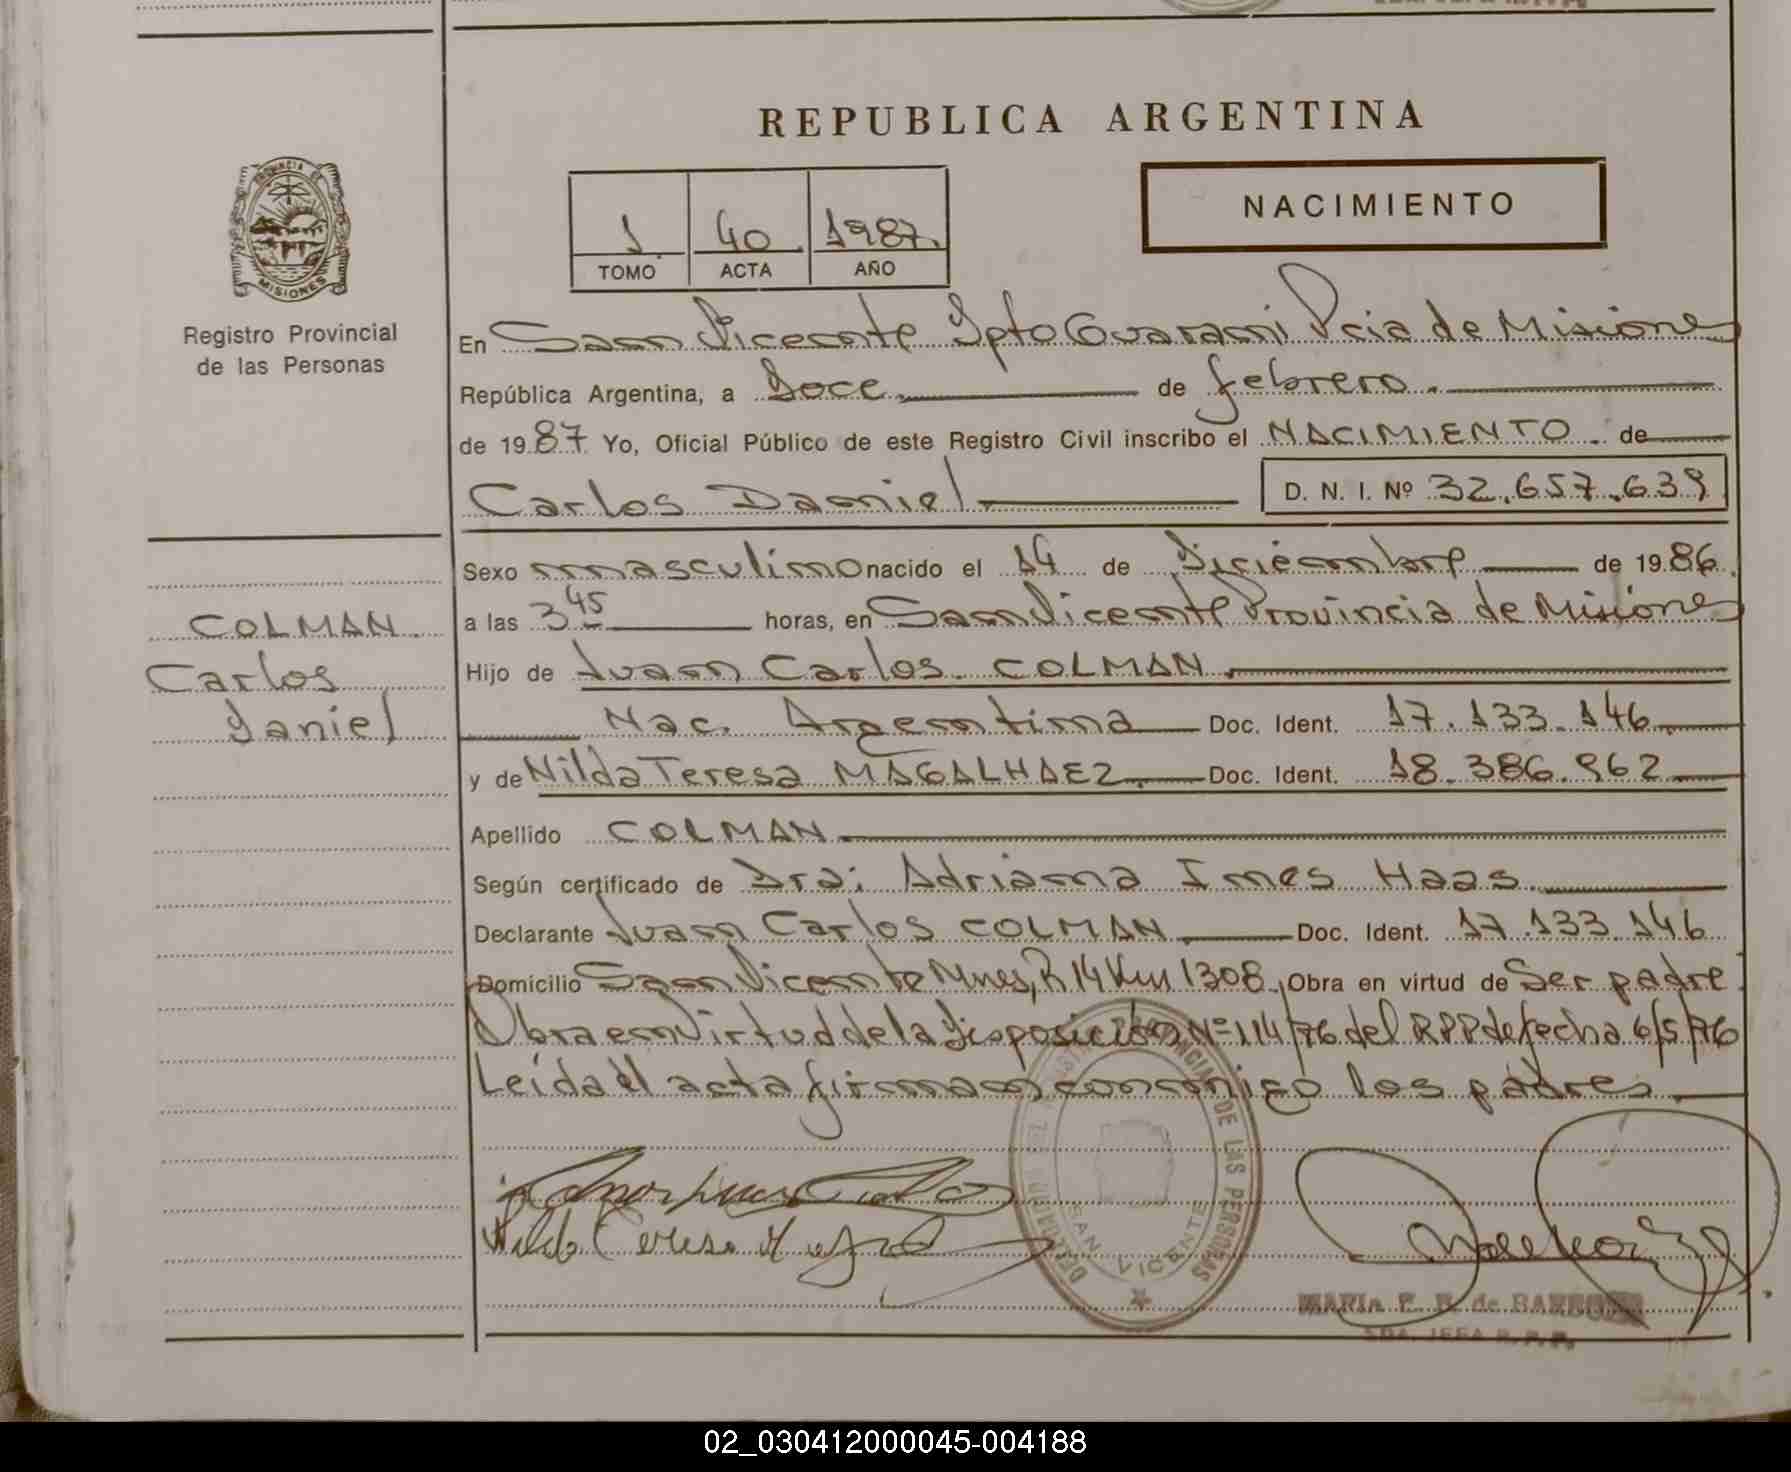 REPUBLICA ARGENTINA
PROVINCIA DE
MISIONES
Registro Provincial
de las Personas
1 40 1987
TOMO ACTA AÑO
NACIMIENTO
En San Vicente Dpto Guarani Pcia de Misiones
República Argentina, a Doce de febrero
de 1987 Yo, Oficial Público de este Registro Civil inscribo el NACIMIENTO de
Carlos Daniel D. N. I. Nº 32.657.639
Sexo masculino nacido el 14 de Diciembre de 1986
a las 3 45 horas, en San Vicente Provincia de Misiones
COLMAN
Carlos
Daniel
Hijo de Juan Carlos COLMAN
Nac. Argentina Doc. Ident. 17.133.146
y de Nilda Teresa MAGALHAEZ Doc. Ident. 18.386.962
Apellido COLMAN
Según certificado de Dra: Adriana Ines Haas
Declarante Juan Carlos COLMAN Doc. Ident. 17.133.146
Domicilio San Vicente Mnes, R 14 Km 1308 Obra en virtud de Ser padre
Obra en Virtud de la Disposición Nº 114/76 del RPP de fecha 6/5/76
Leída el acta firman conmigo los padres
DE LAS PERSONAS
SAN VICENTE
MARIA E. B. de
SDA. JEFA R.P.P.
02_030412000045-004188